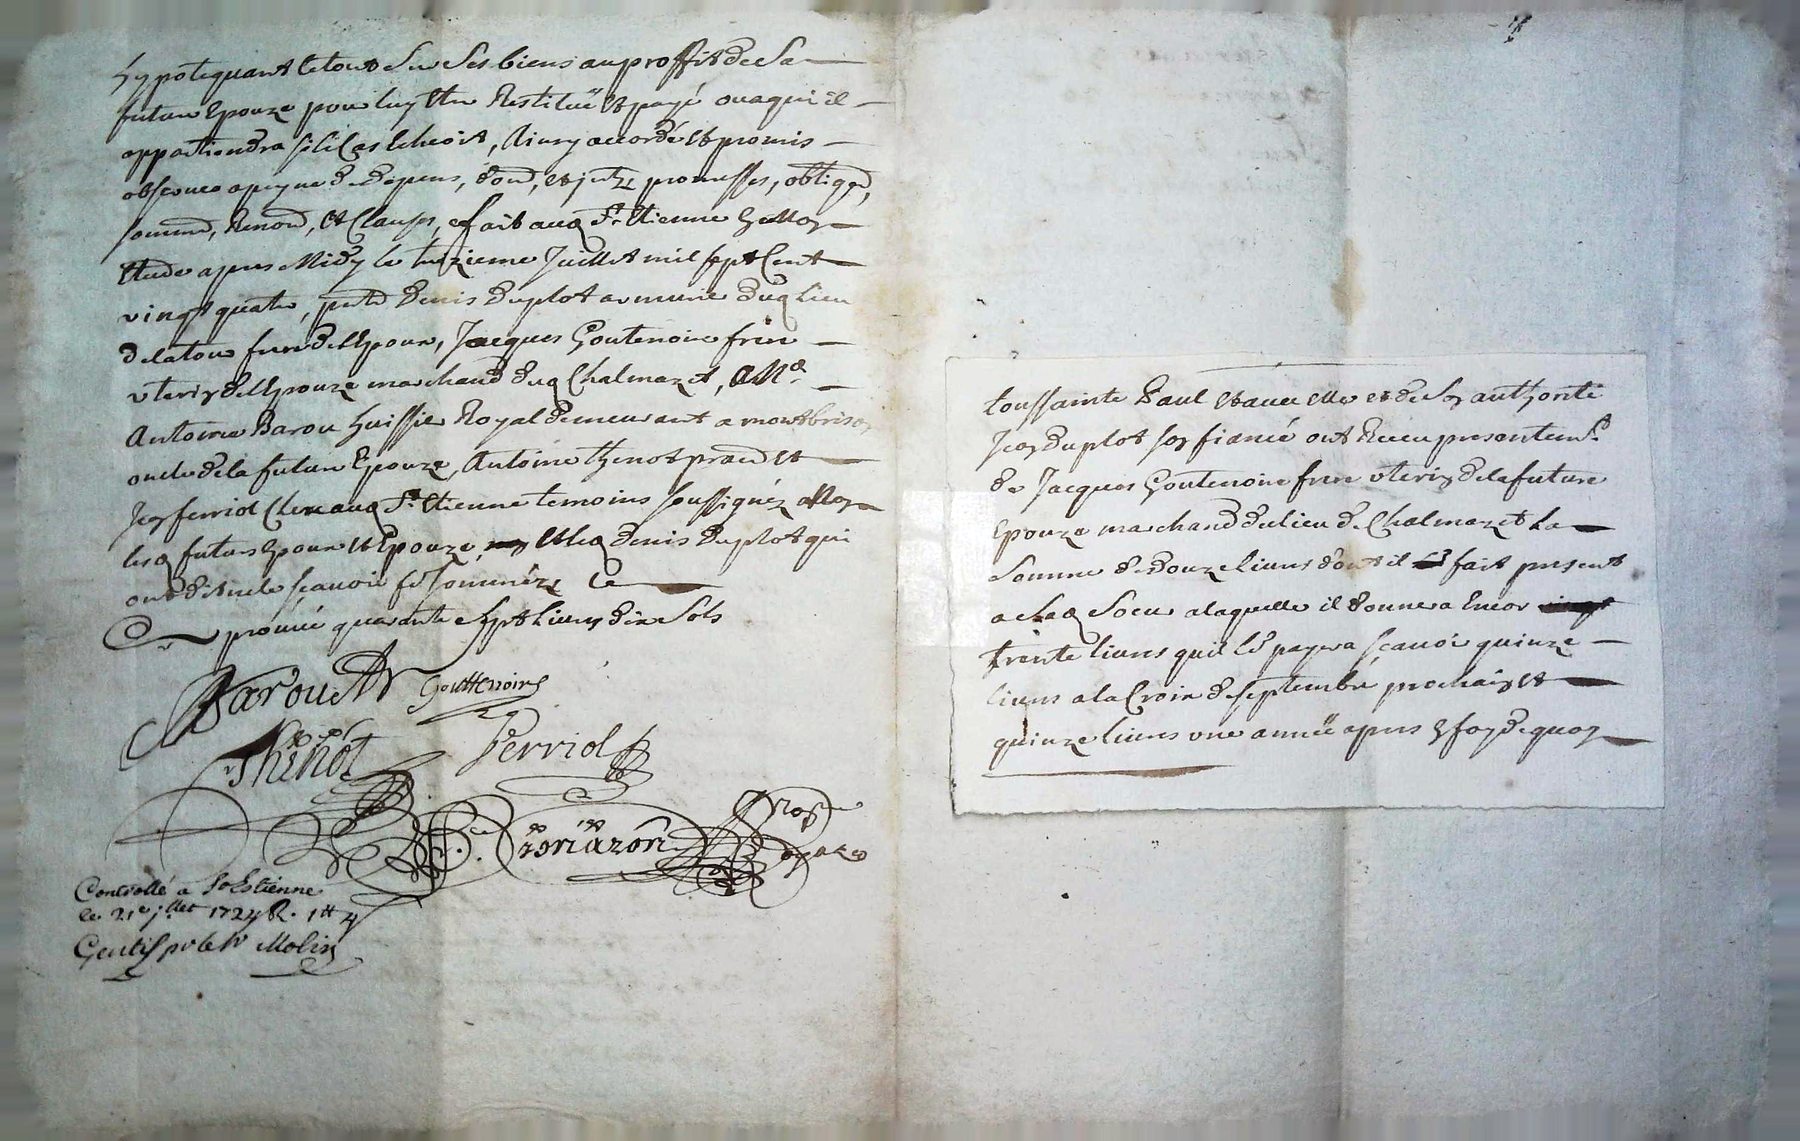 hypotequant le tout sur ses biens au proffit de sa
future Epouze pour luy Etre Restitué et payé ou a qui il
appartiendra si le Cas Echeoit, Ainsy accordé et promis
observer a peyne de depens, dom, et jntz promesses, obligaõ,
soumm, Renonõ, et Clauses, fait aud St Etienne
Etude apres Midy le treizieme Juillet mil sept Cent
vingt quatre, pnts denis duplot armurier dud lieu
de la tour frere de l'Epoux, Jacques Goutenoire frere
uterin de l'Epouze marchand dud Chalmazet, Me
Antoine Barou huissier Royal demeurant a montbrison
oncle de la future Epouze, Antoine thenot pratn et
Jean ferriol Clerc aud St Etienne temoins soussignéz
lesd futurs Epoux et Epouze et led denis duplot qui
ont dit ne le sçavoir de ce sommèz
promé quarante sept livres dix sols
Barou
Gouttenoire
Thenot
Ferriol
Controllé a St Estienne
le 21e jllet 1724 R. 1tt 4
Gentil pr le sr Molin
toussainte Paul Et avec elle et de son authorité
Jean duplot son fiancé ont Receu presentemt
de Jacques Goutenoire frere uterin de la future
Epouze marchand du lieu de Chalmazet La
somme de douze livres dont il fait present
a lad soeur a laquelle il donnera Encor
trente livres quil payera sçavoir quinze
livres a la Croix de septembre prochain et
quinze livres une année apres En foy de quoy